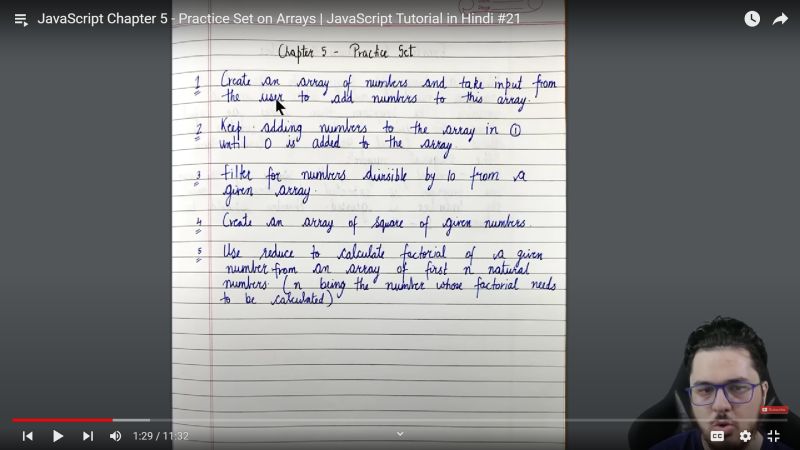 JavaScript Chapter 5 - Practice Set on Arrays | JavaScript Tutorial in Hindi #21
Chapter 5 - Practice Set
1 Create an array of numbers and take input from
the user to add numbers to this array.
2 Keep adding numbers to the array in ①
until 0 is added to the array.
3 Filter for numbers divisible by 10 from a
given array.
4 Create an array of square of given numbers.
5 Use reduce to calculate factorial of a given
number from an array of first n natural
numbers (n being the number whose factorial needs
to be calculated)
1:29 / 11:32
CC